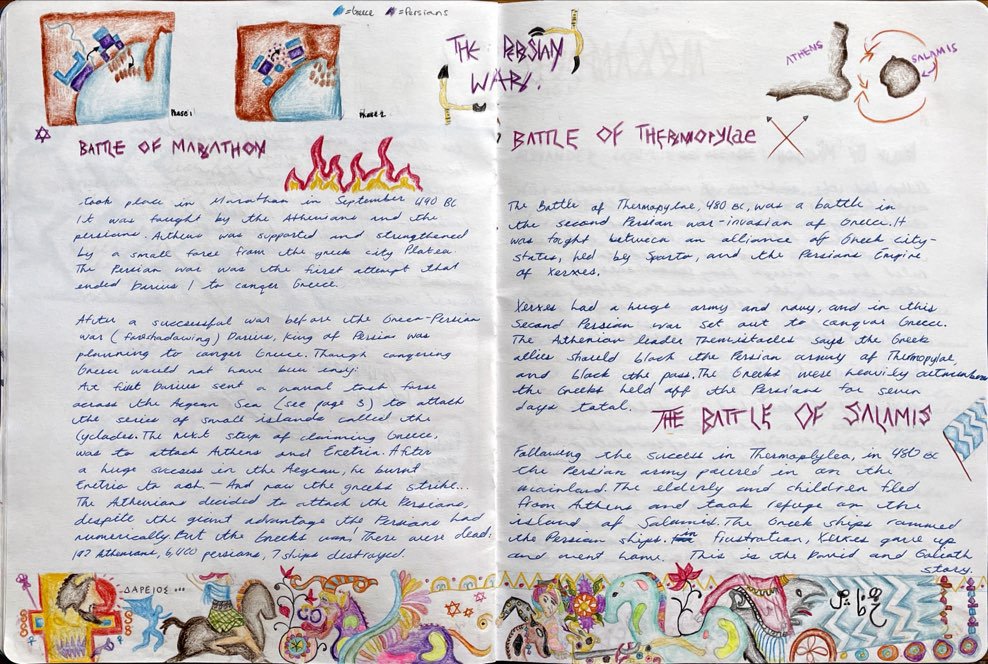 =Greece =Persians
Phase 1
Phase 2
THE PERSIAN
WARS.
BATTLE OF MARATHON
took place in Marathon in September 490 BC
It was faught by the Athenians and the
persians. Athens was supported and strengthened
by a small force from the greek city Platea
The Persian war was the first attempt that
ended Darius 1 to conqer Greece.
After a successful war before the Greco-Persian
war (foreshadowing) Darius, King of Persian was
planning to conqer Greece. Though conqering
Greece would not have been easy:
At first Darius sent a naval task forse
across the Aegean Sea (see page 3) to attack
the series of small islands called the
Cyclades. The next step of claiming Greece,
was to attack Athens and Eretria. After
a huge success in the Aegean, he burnt
Eretria to ash — And now the greeks strike...
The Athenians decided to attack the Persians,
despite the giant advantage the Persians had
numerically. But the Greeks won! There were dead:
192 Athenians, 6,400 persians, 7 ships destroyed.
ΔΑΡΕΙΟΣ...
ATHENS
SALAMIS
BATTLE OF THERMOPYLAE
The Battle of Thermopylae, 480 BC, was a battle in
the second Persian war-invasion of Greece. It
was foght between an alliance off Greek city-
states, led by Sparta, and the Persians Empire
of Xerxes.
Xerxes had a huge army and navy, and in this
Second Persian war set out to conquar Greece.
The Athenian leader Themistacles says the Greek
allies should block the Persian army of Thermopylae,
and block the pass. The Greeks were heavily outnumbered
the Greeks held off the Persians for seven
days total.
THE BATTLE OF SALAMIS
Following the success in Thermoplylea, in 480 BC
the Persian army poured in on the
mainland. The elderly and children fled
from Athens and took refuge on the
island of Salamis. The Greek ships rammed
the Persian ships. In frustration, Xerxes gave up
and went home. This is the David and Goliath
story.